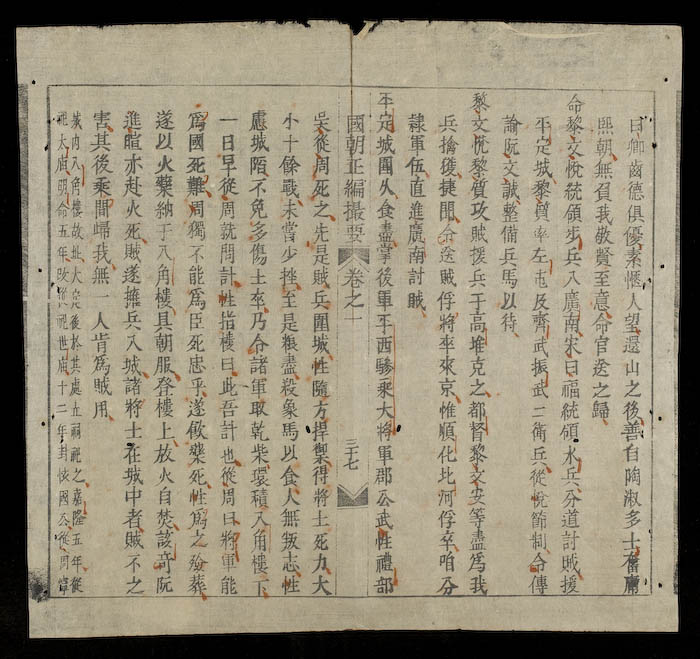 曰卿齒德俱優素愜人望還山之後善自陶淑多士奮庸
熙朝無負我敬賢至意命官送之歸
命黎文悅統領步兵入廣南宋曰福統領水兵分道討賊援
平定城黎質率左屯及齊武振武二衛兵從悅節制令傳
諭阮文誠整備兵馬以待
黎文悅黎質攻賊援兵于高堆克之都督黎文安等盡為我
兵擒獲捷聞命送賊俘將率來京惟順化北河俘卒咱分
隸軍伍直進廣南討賊
平定城圍久食盡掌後軍平西驂乘大將軍郡公武性禮部
國朝正編撮要 卷之一 三十七
吳從周死之先是賊兵圍城性隨方捍禦得將士死力大
小十餘戰未嘗少挫至是粮盡殺象馬以食人無叛志性
慮城陷不免多傷士卒乃令諸軍取乾柴環積八角樓下
一日早從周就問計性指樓曰此吾計也從周曰將軍能
為國死難周獨不能為臣死忠乎遂飲藥死性為之殮葬
遂以火藥納于八角樓具朝服登樓上放火自焚該奇阮
進暄亦赴火死賊遂擁兵入城諸將士在城中者賊不之
害其後乘間歸我無一人肯為賊用
城內八角樓故址大定後於其處立祠祀之嘉隆五年從
祀太廟明命五年改從祀世廟十二年封懷國公後周